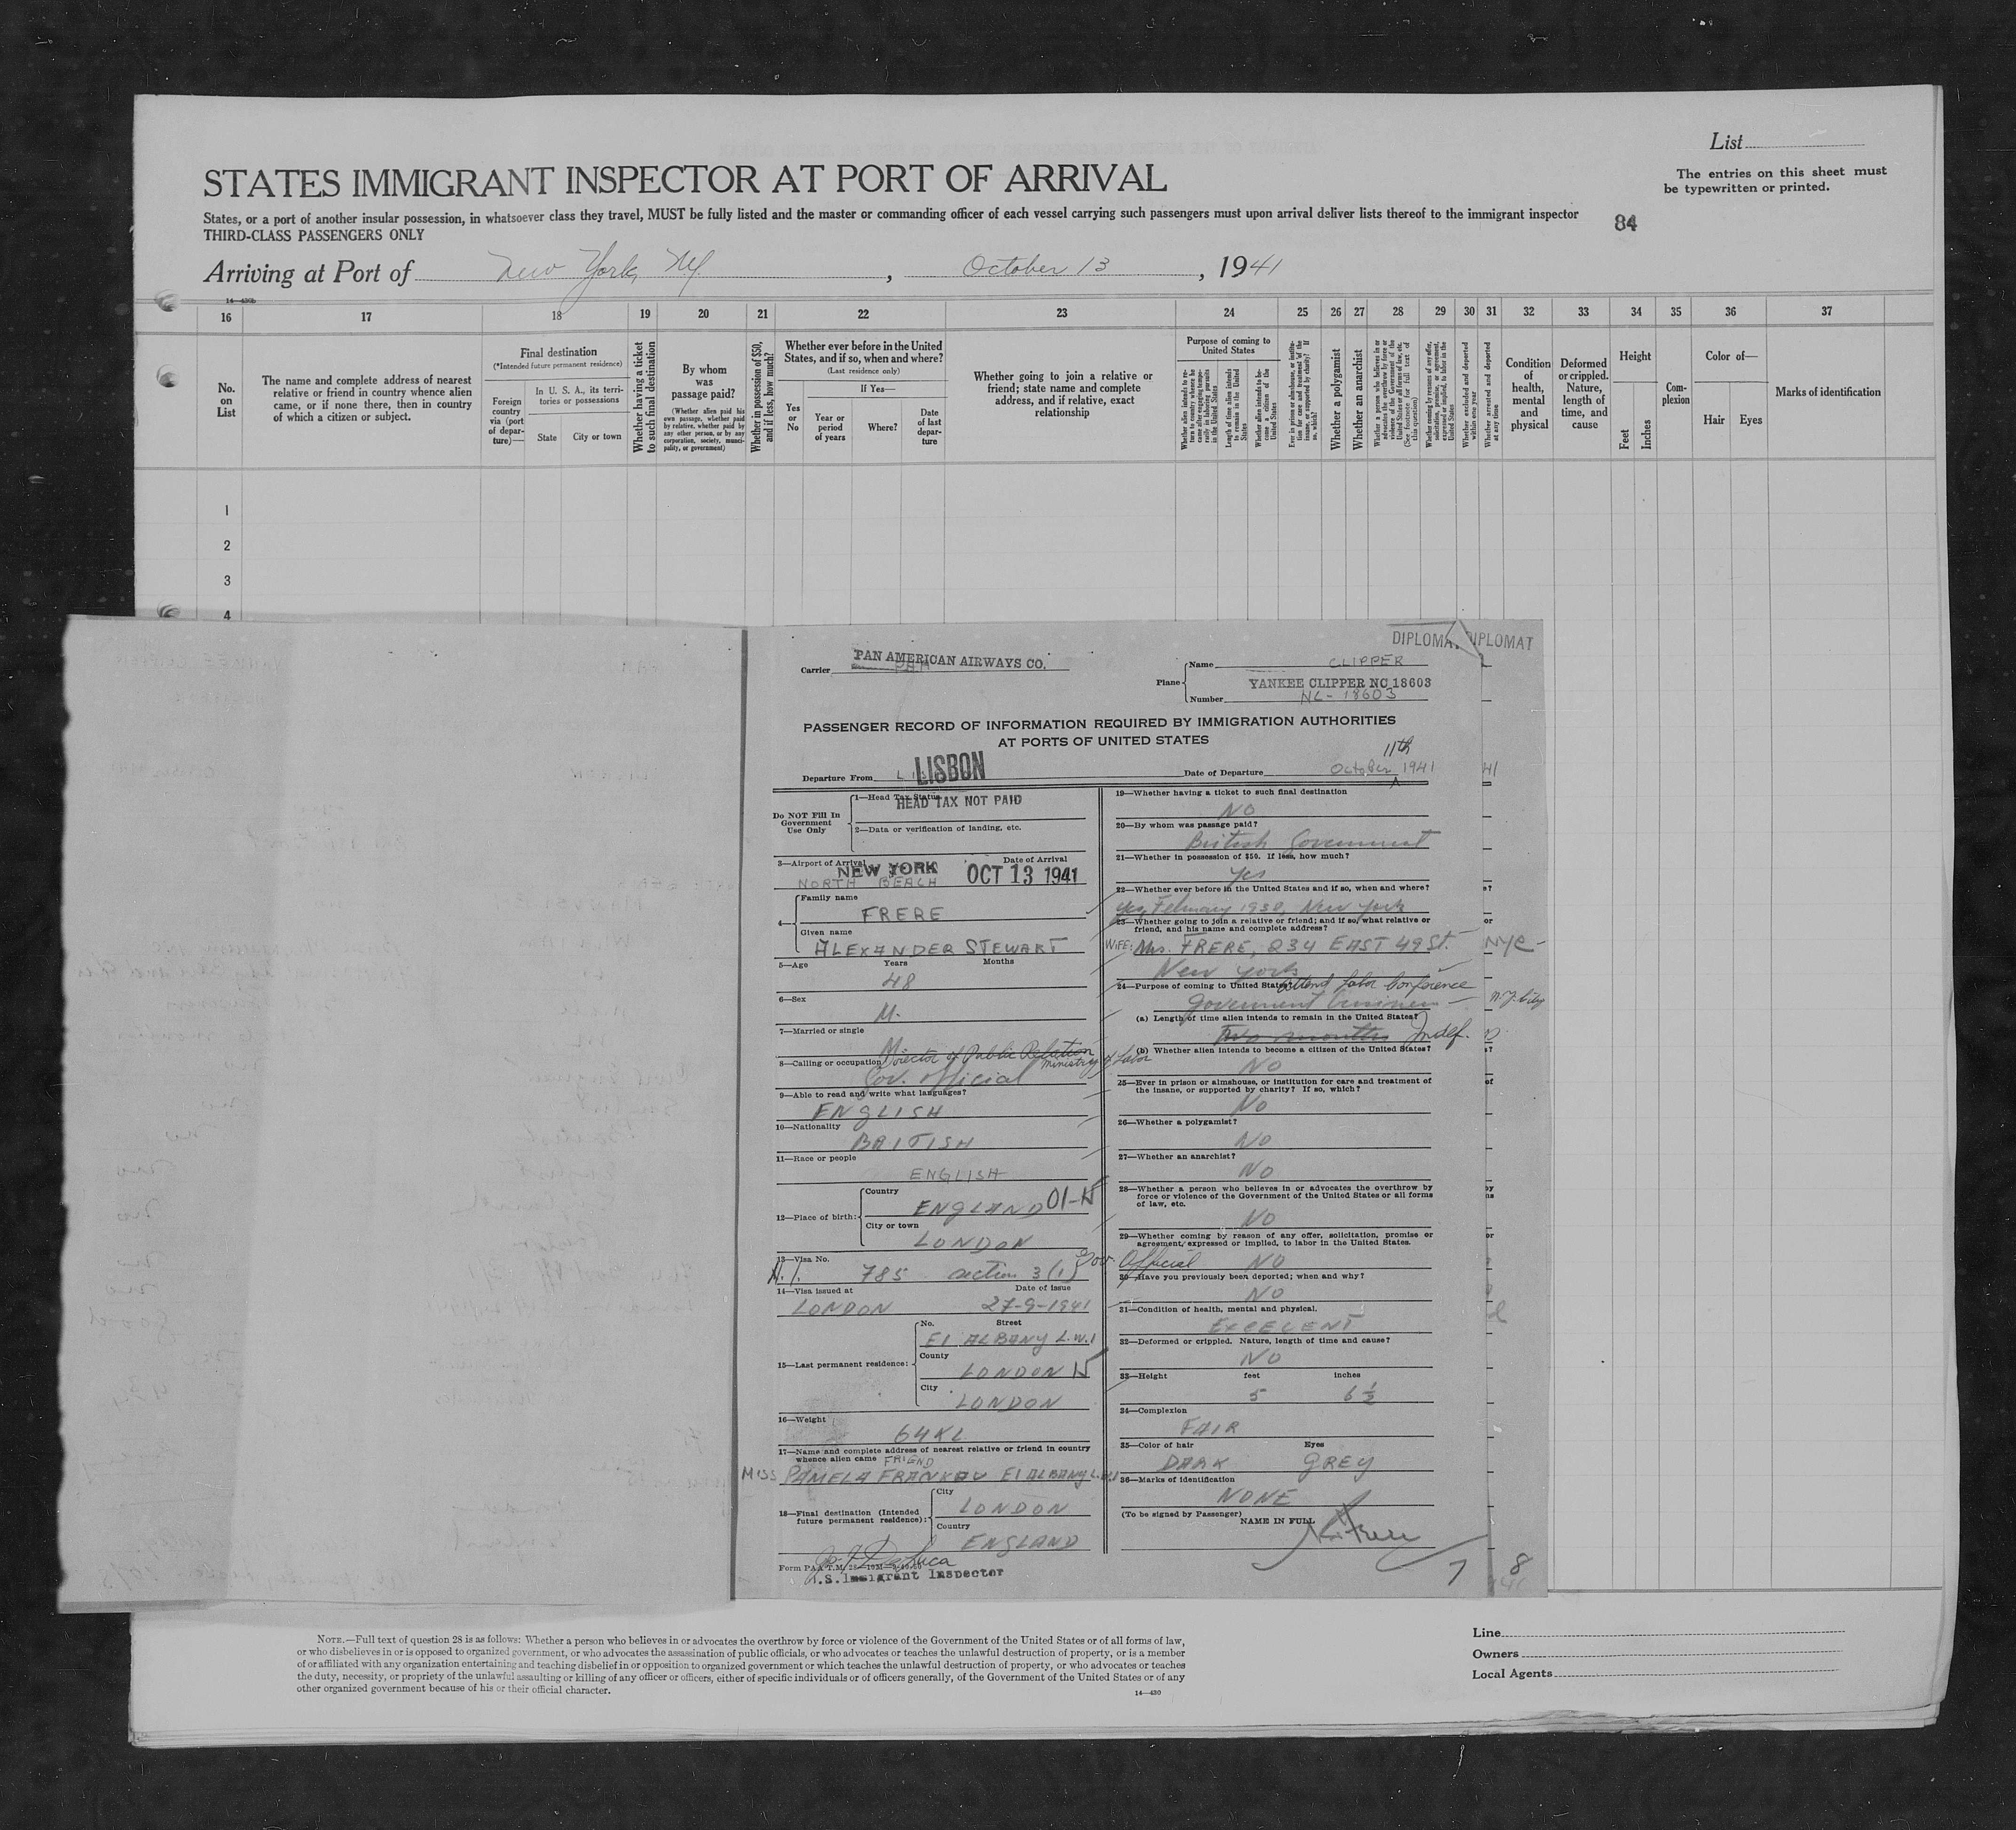 List
STATES IMMIGRANT INSPECTOR AT PORT OF ARRIVAL
The entries on this sheet must
be typewritten or printed.
States, or a port of another insular possession, in whatsoever class they travel, MUST be fully listed and the master or commanding officer of each vessel carrying such passengers must upon arrival deliver lists thereof to the immigrant inspector
THIRD-CLASS PASSENGERS ONLY
84
Arriving at Port of New York, NY, October 13, 1941
14—430b
16 17 18 19 20 21 22 23 24 25 26 27 28 29 30 31 32 33 34 35 36 37
No. on List
The name and complete address of nearest relative or friend in country whence alien came, or if none there, then in country of which a citizen or subject.
Final destination
(*Intended future permanent residence)
Foreign country via (port of departure)—
In U. S. A., its territories or possessions
State
City or town
Whether having a ticket to such final destination
By whom was passage paid?
(Whether alien paid his own passage, whether paid by relative, whether paid by any other person, or by any corporation, society, municipality, or government)
Whether in possession of $50, and if less, how much?
Whether ever before in the United States, and if so, when and where?
(Last residence only)
Yes or No
If Yes—
Year or period of years
Where?
Date of last departure
Whether going to join a relative or friend; state name and complete address, and if relative, exact relationship
Purpose of coming to United States
Whether alien intends to return to country whence he came after engaging temporarily in laboring pursuits in the United States
Length of time alien intends to remain in the United States
Whether alien intends to become a citizen of the United States
Ever in prison or almshouse, or institution for care and treatment of the insane, or supported by charity? If so, which?
Whether a polygamist
Whether an anarchist
Whether a person who believes in or advocates the overthrow by force or violence of the Government of the United States or all forms of law, etc. (See footnote for full text of this question)
Whether coming by reason of any offer, solicitation, promise, or agreement, expressed or implied, to labor in the United States
Whether excluded and deported within one year
Whether arrested and deported at any time
Condition of health, mental and physical
Deformed or crippled. Nature, length of time, and cause
Height
Feet
Inches
Complexion
Color of—
Hair
Eyes
Marks of identification
1
2
3
4
DIPLOMAT
Carrier PAN AMERICAN AIRWAYS CO.
PAA
Plane
Name CLIPPER
YANKEE CLIPPER NC 18603
Number NC-18603
PASSENGER RECORD OF INFORMATION REQUIRED BY IMMIGRATION AUTHORITIES
AT PORTS OF UNITED STATES
Departure From LISBON
Date of Departure October 11th 1941
Do NOT Fill In
Government
Use Only
1—Head Tax Status
HEAD TAX NOT PAID
2—Data or verification of landing, etc.
3—Airport of Arrival Date of Arrival
NEW YORK OCT 13 1941
NORTH BEACH
4—Family name
FRERE
Given name
ALEXANDER STEWART
5—Age Years Months
48
6—Sex
M.
7—Married or single
M
8—Calling or occupation Director of Public Relation
Ministry of Labor
Gov. official
9—Able to read and write what languages?
ENGLISH
10—Nationality
BRITISH
11—Race or people
ENGLISH
12—Place of birth:
Country
ENGLAND 01-15
City or town
LONDON
13—Visa No.
785 section 3 (1) Gov Official
14—Visa issued at Date of issue
LONDON 27-9-1941
15—Last permanent residence:
No. Street
E1 ALBANY L.W.1
County
LONDON 15
City
LONDON
16—Weight
64 KL
17—Name and complete address of nearest relative or friend in country
whence alien came FRIEND
MISS PAMELA FRANKAU E1 ALBANY L.W.1
18—Final destination (Intended
future permanent residence):
City
LONDON
Country
ENGLAND
Form PAA T.M.
U.S. Immigrant Inspector
19—Whether having a ticket to such final destination
NO
20—By whom was passage paid?
British Government
21—Whether in possession of $50. If less, how much?
yes
22—Whether ever before in the United States and if so, when and where?
yes, February 1938, New York
23—Whether going to join a relative or friend; and if so, what relative or
friend, and his name and complete address?
WIFE: Mrs. FRERE, 234 EAST 49 St. NYC
New York
24—Purpose of coming to United States attend Labor Conference
Government business — N.Y. City
(a) Length of time alien intends to remain in the United States?
Two months Indef.
(b) Whether alien intends to become a citizen of the United States?
NO
25—Ever in prison or almshouse, or institution for care and treatment of
the insane, or supported by charity? If so, which?
NO
26—Whether a polygamist?
NO
27—Whether an anarchist?
NO
28—Whether a person who believes in or advocates the overthrow by
force or violence of the Government of the United States or all forms
of law, etc.
NO
29—Whether coming by reason of any offer, solicitation, promise or
agreement, expressed or implied, to labor in the United States.
NO
30—Have you previously been deported; when and why?
NO
31—Condition of health, mental and physical.
EXCELENT
32—Deformed or crippled. Nature, length of time and cause?
NO
33—Height feet inches
5 6 ½
34—Complexion
FAIR
35—Color of hair Eyes
DARK GREY
36—Marks of identification
NONE
(To be signed by Passenger)
NAME IN FULL
7 8
NOTE.—Full text of question 28 is as follows: Whether a person who believes in or advocates the overthrow by force or violence of the Government of the United States or of all forms of law,
or who disbelieves in or is opposed to organized government, or who advocates the assassination of public officials, or who advocates or teaches the unlawful destruction of property, or is a member
of or affiliated with any organization entertaining and teaching disbelief in or opposition to organized government or which teaches the unlawful destruction of property, or who advocates or teaches
the duty, necessity, or propriety of the unlawful assaulting or killing of any officer or officers, either of specific individuals or of officers generally, of the Government of the United States or of any
other organized government because of his or their official character.
14—430
Line
Owners
Local Agents